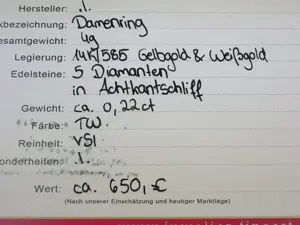 Hersteller: ./.
kbezeichnung: Damenring
esamtgewicht: 4g
Legierung: 14K/585 Gelbgold & Weißgold
Edelsteine: 5 Diamanten
in Achtkantschliff
Gewicht: ca. 0,22ct
Farbe: TW.
Reinheit: VSI
onderheiten: ./.
Wert: ca. 650,- €
(Nach unserer Einschätzung und heutiger Marktlage)